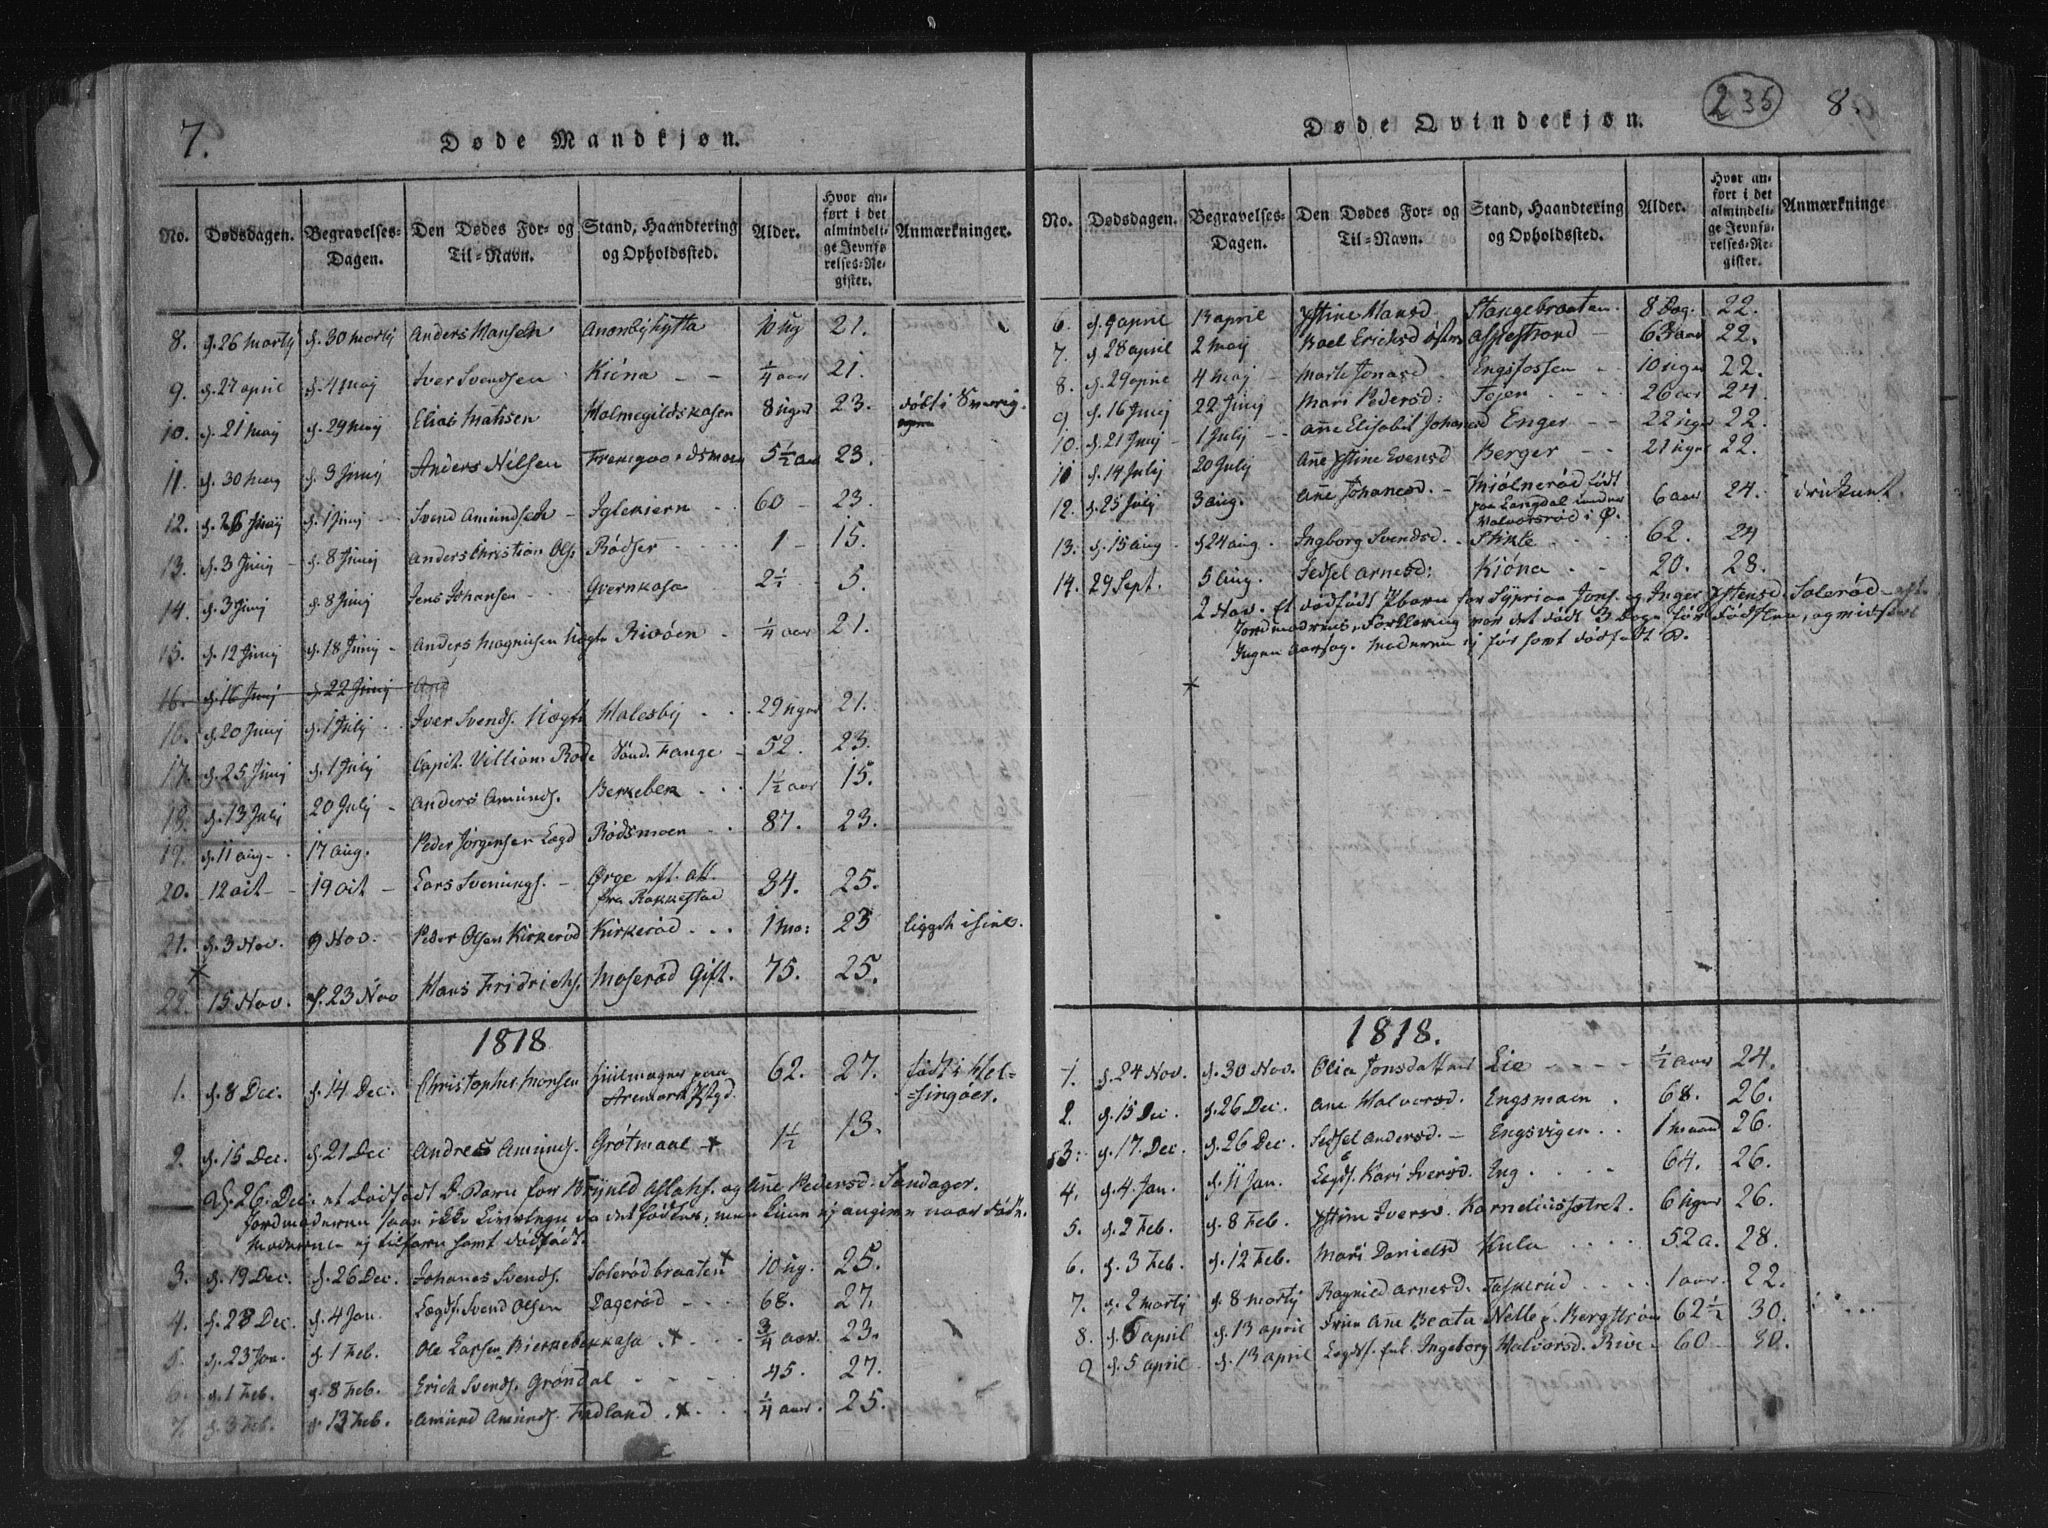 7.
Døde Mandkjøn.
No. Dødsdagen. Begravelses-Dagen. Den Dødes For- og Til-Navn. Stand, Haandtering og Opholdssted. Alder. Hvor anført i det almindelige Jevnførelses-Register. Anmærkninger.
8. d. 26 Martij d. 30 Martij Anders Hansen 10 ug 21.
9. d. 27 april d. 4 maj Iver Svendsen Kiöna - - ¼ aar 21.
10. d. 21 maj d. 29 maj Elias Matisen Holmegildskasen 8 uger 23. döbt i Sverig.
11. d. 30 maj d. 3 Junij Anders Nilsen 5½ aar 23.
12. d. 26 Junij d. 1 Junij Svend Amundsen - 60 - 23.
13. d. 3 Junij - d. 8 Junij Anders Christian Ols. Rödser 1 - 15.
14. d. 3 Junij d. 8 Junij Jens Johansen Qvernkasa 2½ 5.
15. d. 12 Junij d. 18 Junij - Anders Magnusen Rivöen - ¼ aar 21.
16. d. 16 Junij d. 22 Junij And
16. d. 20 Junij d. 1 Julij Iver Svends. 29 uger 21.
17. d. 25 Junij d. 1 Julij Capit. Villiam Rode Sönd. Fange - 52. 23.
18. d. 13 Julij 20 Julij - Anders Amunds. Berkebek 1½ aar 15.
19. d. 11 aug. 17 aug. Peder Jörgensen Lægd Rödsmoen 87. 23.
20. 12 oct - 19 oct - Lars Svenings. - Ørge eft. att. 34. 25.
fra Rakkestad
21. d. 3 Nov. 9 Nov. Peder Olsen Kirkeröd Kirkeröd 1 mo: 23
22. 15 Nov. d. 23 Nov Hans Fridrichs. Moseröd Gift. 75. 25.
1818
1. d. 8 Dec. d. 14 Dec. Christopher Monsen Hiulmager paa 62. 27. födt i Hel-
Aremark Pstgd. =singöer.
2. d. 15 Dec. d. 21 Dec Andreas Amunds. Grötmaal 1½ 13.
d. 26 Dec. et dödfödt D. Barn for Brynild Aslaks. og Ane Pedersd. Sandager.
3. d. 19 Dec. d. 26 Dec. Johanes Svends. Soleröd braaten 10 ug. 25.
4. d. 28 Dec. d. 4 Jan. Lægds. Svend Olsen Dageröd 68. 27.
5. d. 23 Jan. d. 1 Feb. Ole Larsen Bierkebekkasa ¾ aar. 23.
6. d. 1 Feb. d. 8 Feb. Erich Svends. Gröndal 45. 27.
7. d. 3 Feb. d. 13 Feb. Amund Amunds. Fladland ¼ aar. 25.
235
8.
Døde Qvindekjøn.
No. Dødsdagen. Begravelses-Dagen. Den Dødes For- og Til-Navn. Stand, Haandtering og Opholdssted. Alder. Hvor anført i det almindelige Jevnførelses-Register. Anmærkninge
6. d. 9 april 13 april Hansd Stangebraaten. 8 Dag. 22.
7. d. 28 april 2 maj Kael Ericksd 63 aar 22.
8. d. 29 april 4 maj Marte Jonasd Engsfossen 10 uger 22.
9. d. 16 Junij 22 Junij Mari Pedersd: Tojen 26 aar 24.
10. d. 21 Junij - 1 Julij - Ane Elisabet Johansd Enger 22 uger 22.
11 d. 14 Julij 20 Julij Ane Evensd Berger 21 uger 22.
12. d. 25 Julij 3 aug. Ane Johanesd. - Miölneröd födt 6 aar 24. druknet.
paa Langdal
Halvorsröd i Ø.
13. d. 15 aug d. 24 aug. Ingborg Svendsd. Stikle 62. 24
14. 29 Sept. 5 Sidsel Arnesd: Kiöna 20. 28.
2 Nov. Et dödfödt Pbarn for Syprian Jons. og Inger Soleröd - eft.
Jordmodrens Forklaring var det dödt 3 Dage för Födselen, og
Ingen aarsag. Moderen ej för havt dödfödt B.
1818.
1. d. 24 Nov. d. 30 Nov. Olia Jonsdatter Lie ½ aar 24.
2. d. 15 Dec. d. 26 Dec. Ane Halvorsd. Engsmoen 68. 26.
3. d. 17 Dec. d. 26 Dec. Sidsel Andersd. - Engsvigen 1 maand 26.
4. d. 4 Jan. d. 11 Jan. Lægds. Kari Iversd. Eng 64. 26.
5. d. 2 Feb. d. 8 Feb. Iversd. Korneliussætret. 6 uger 26.
6. d. 3 Feb. d. 12 Feb. Mari Danielsd Kula 52 a. 28.
7. d. 2 Martij d. 8 Martij Ragnild Arnesd. Taskeröd 1 aar. 22.
8. d. 6 april d. 13 april Ane Beata Nelle f. Bergström 62½ 30.
9 d. 5 april d. 13 april Lægds. enk. Ingeborg Halvorsd. Rive 60 30.